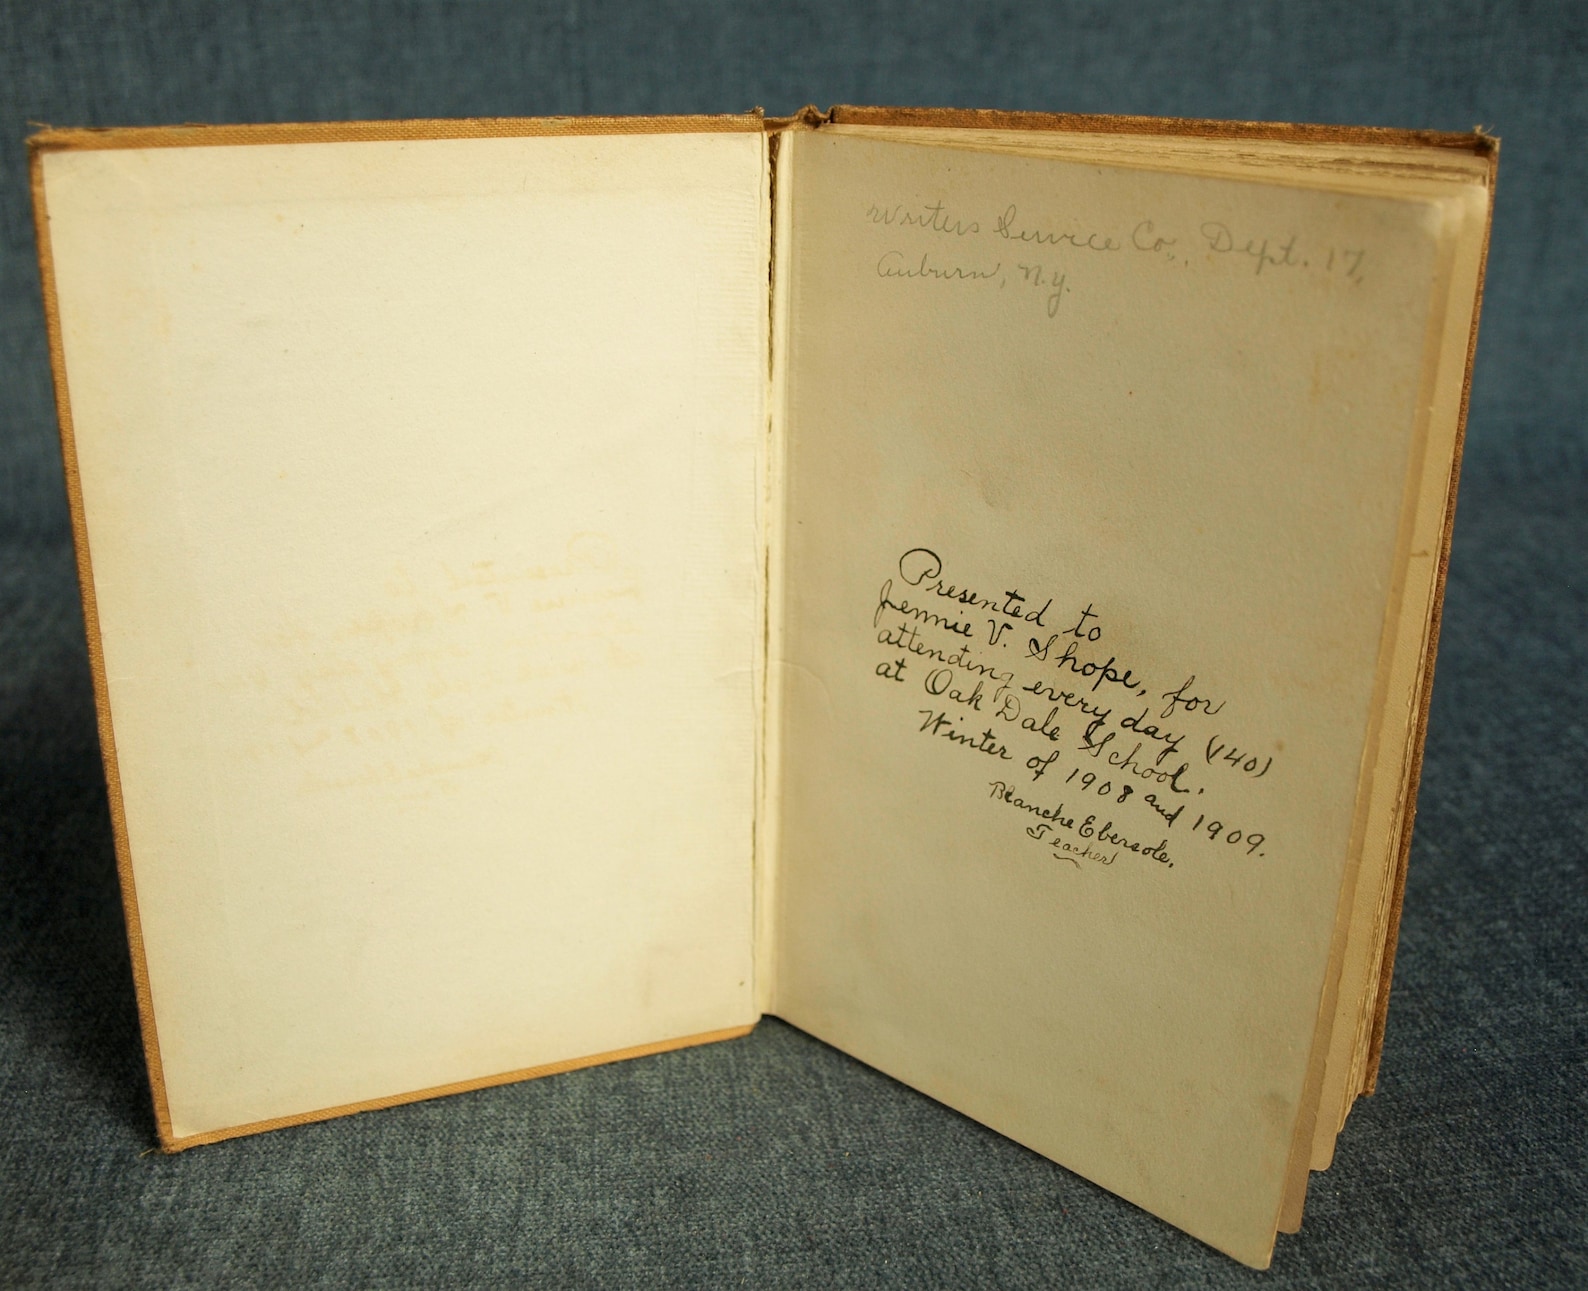 Writers Service Co., Dept. 17,
Auburn, N.Y.
Presented to
Jennie V. Shope, for
attending every day (140)
at Oak Dale School.
Winter of 1908 and 1909.
Blanche Ebersole,
Teacher